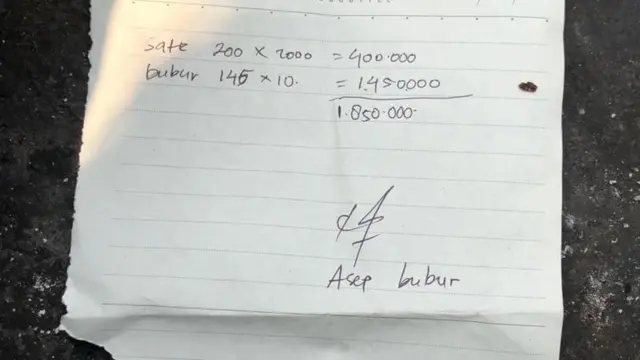 Sate 200 x 2000 = 400.000
bubur 145 x 10. = 1.450000
1.850.000.
Asep bubur